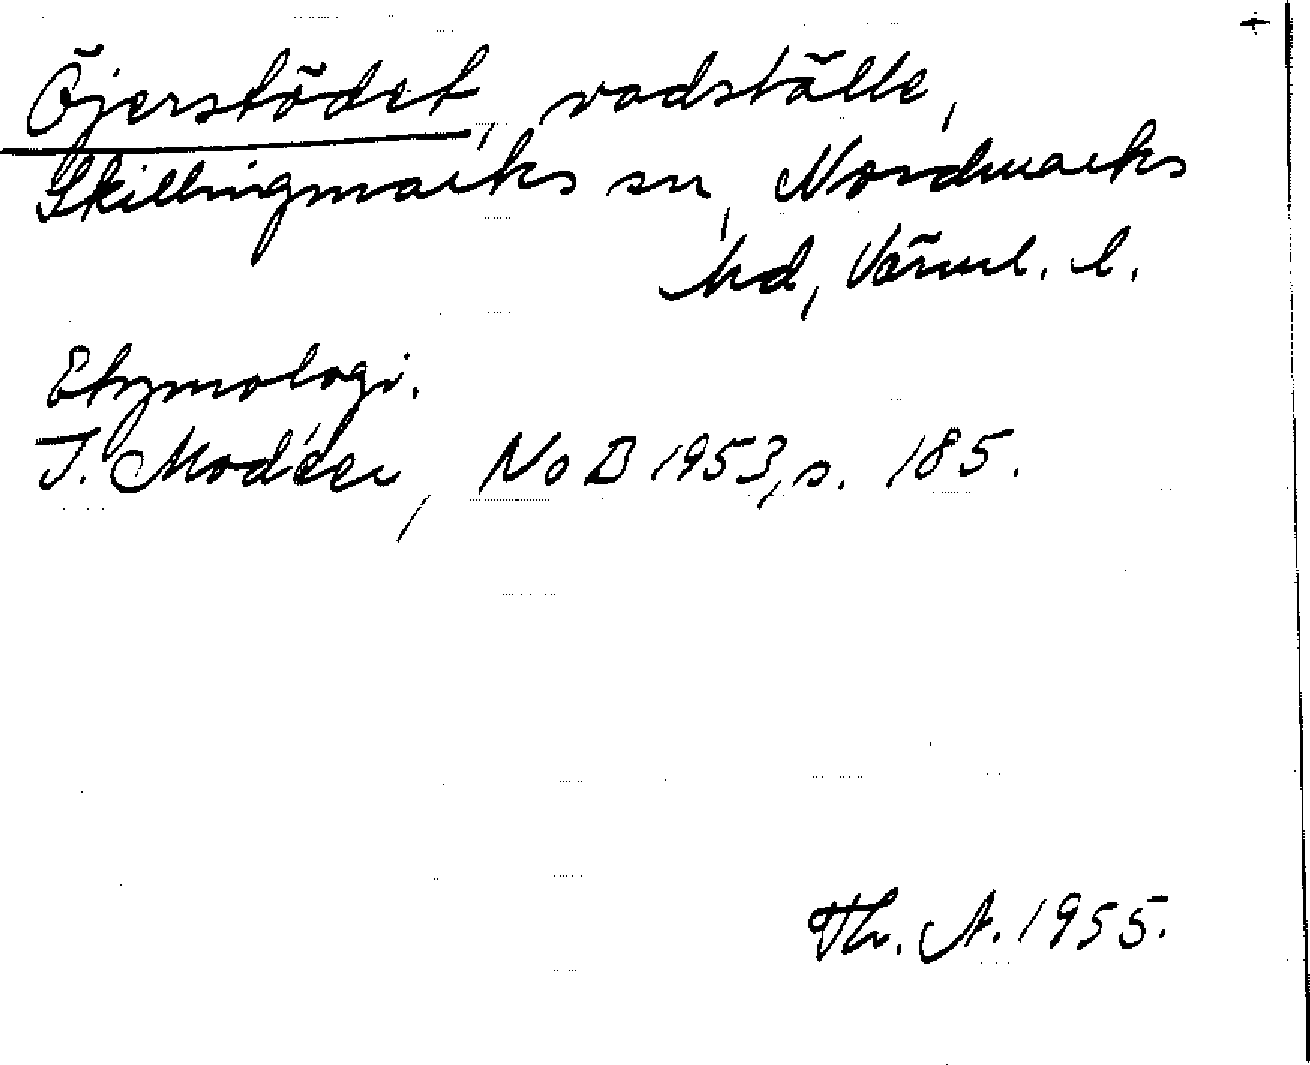 Öjerstödet, vadställe,
Skillingmarks sn, Nordmarks
hd, Värml. l.
Etymologi.
I. Modéer, NoB 1953, s. 185.
Th. A. 1955.